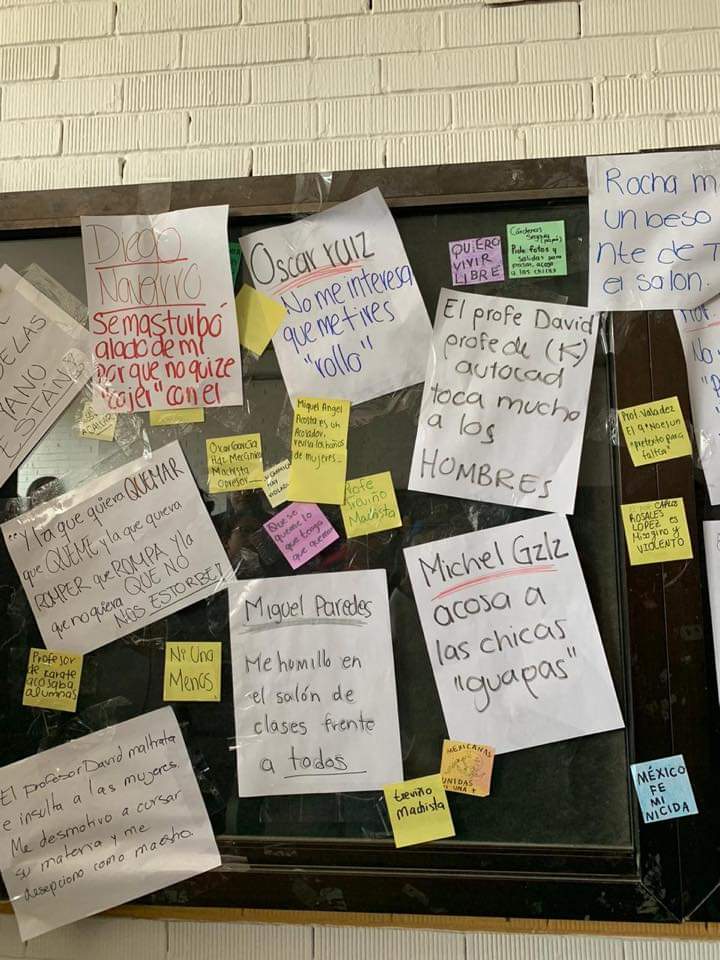 Diego
Navarro
Se masturbó
alado de mi
por que no quize
"cojer" con el
Oscar ruiz
No me interesa
que me tires
"rollo"
QUIERO
VIVIR
LIBRE
Cárdenas
Pide fotos y
salidas para
pasar, acosa
a las chicas
Rocha m
un beso
nte de
el salón.
El profe David
profe de (K)
autocad
toca mucho
a los
HOMBRES
ELAS
ANO
ESTAN
Oscar García
Hdz Mecánica
Machista
Opresor
Miguel Angel
Acosta es un
Acosador,
de mujeres
Profe
Treviño
Machista
Que se
queme lo
que tenga
que quemar
Prof. Valadez
El 9
"pretexto para
faltar"
CARLOS
ROSALES
LÓPEZ es
Misógino y
VIOLENTO
"Y la que quiera QUEMAR
que QUEME y la que quiera
ROMPER que ROMPA y la
que no quiera QUE NO
NOS ESTORBE!
Profesor
de karate
acosaba
alumnas
Ni Una
Menos
Miguel Paredes
Me humillo en
el salón de
clases frente
a todos
Michel Gzlz
acosa a
las chicas
"guapas"
El profesor David maltrata
e insulta a las mujeres.
Me desmotivo a cursar
su materia y me
desepciono como maestro.
treviño
Machista
MEXICANAS
UNIDAS
MÉXICO
FE
MI
NICIDA